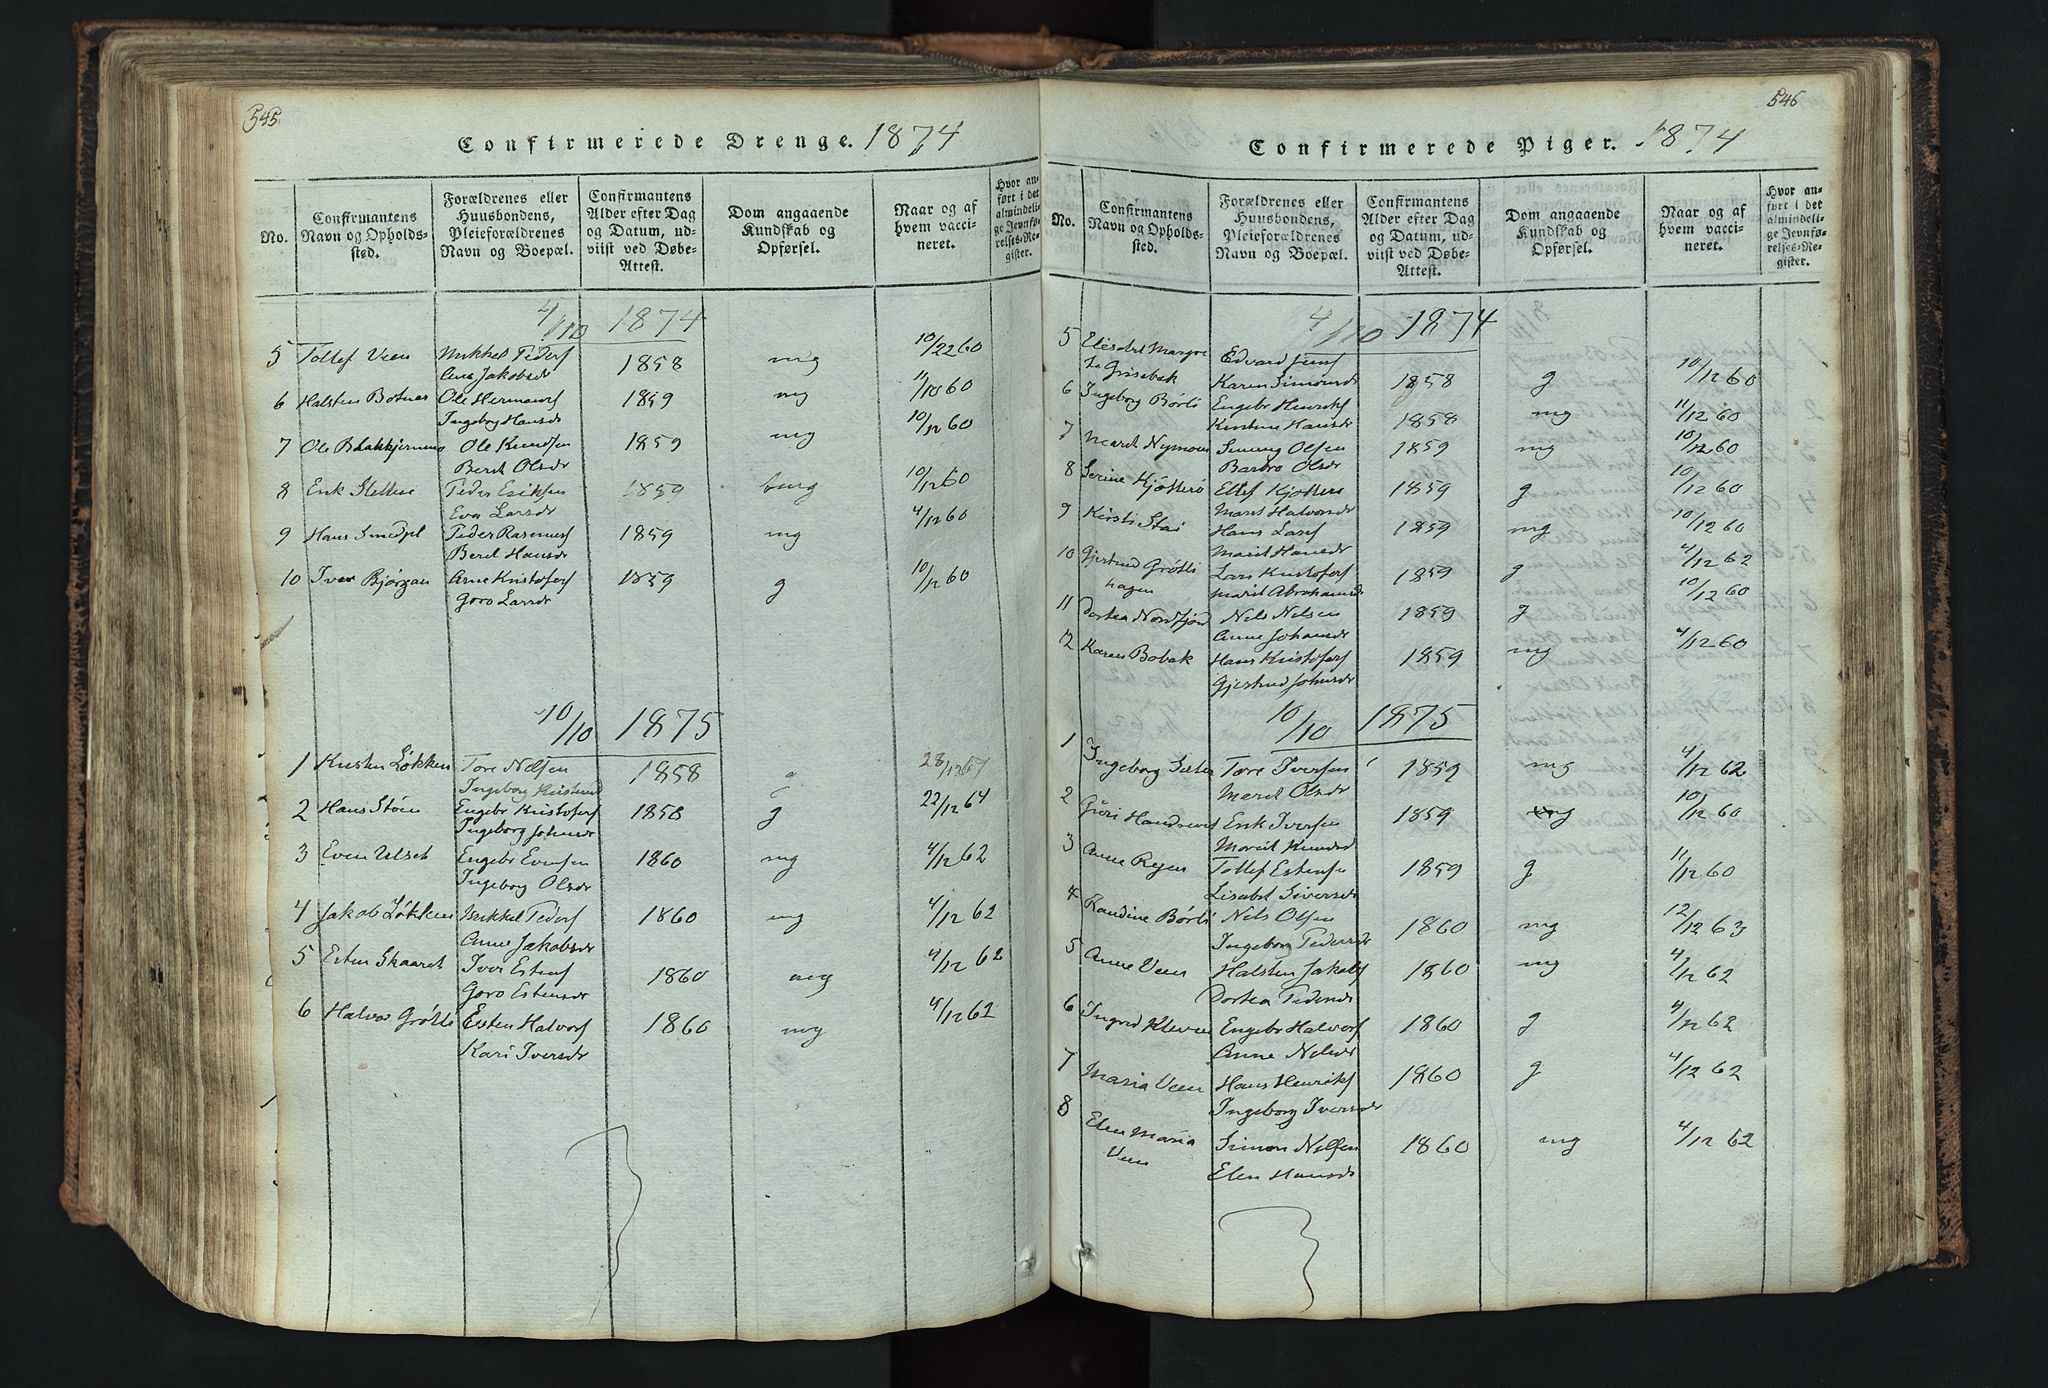 545
Confirmerede Drenge. 1874
No.
Confirmantens Navn og Opholdssted.
Forældrenes eller Huusbondens, Pleieforældrenes Navn og Boepæl.
Confirmantens Alder efter Dag og Datum, udviist ved Døbe-Attest.
Dom angaaende Kundskab og Opførsel.
Naar og af hvem vaccineret.
Hvor anført i det almindelige Jevnførelses-Register.
4/10 1874
5 Tollef Veen Mikkel Peders 1858 mg 10/12 60
Ane Jakobsdr
6 Halsten Botnes Ole Hermans 1859 mg 11/10 60
Ingeborg Hansdr
7 Ole Ole Knudsen 1859 mg 10/12 60
Berit Olsdr
8 Erik Peder Eriksen 1859 10/12 60
Eva Larsdr
9 Hans Peder Rasmus 1859 mg 4/12 60
Berit Hansdr
10 Iver Bjørgan Arne Kristofers 1859 g 10/12 60
Goro Larsdr
10/10 1875
1 Kristen Løkken Tore Nilsen 1858 g 28/12 67
Ingeborg
2 Hans Støen Engebr Kristofers 1858 g 22/12 64
Ingeborg Johnsdr
3 Even Ulset Engebr Evensen 1860 mg 4/12 62
Ingeborg Olsdr
4 Jakob Løkken Mikkel Peders 1860 mg 4/12 62
Anne Jakobsdr
5 Esten Skaaret Iver Estens 1860 mg 4/12 62
Goro Estensdr
6 Halvor Grøtli Esten Halvors 1860 mg 4/12 62
Kari Iversdr
546
Confirmerede Piger. 1874
No.
Confirmantens Navn og Opholdssted.
Forældrenes eller Huusbondens, Pleieforældrenes Navn og Boepæl.
Confirmantens Alder efter Dag og Datum, udviist ved Døbe-Attest.
Dom angaaende Kundskab og Opførsel.
Naar og af hvem vaccineret.
Hvor anført i det almindelige Jevnførelses-Register.
4/10 1874
5 Elisabet Edvard Jens
Karen Simonsdr 1858 g 10/12 60
6 Ingeborg Børli Engebr Henriks
Kirstine Hansdr 1858 mg 11/12 60
7 Marit Nymoen Olsen 1859 mg 10/12 60
Barbro Olsdr
8 Serine Kjøtterø Ellef 1859 g 10/12 60
Marit Halvorsdr
9 Kirsti Stai Hans Lars 1859 mg 10/12 60
Marit Hansdr
10 Gjertrud Grøtli Lars Kristofers 1859 g 4/12 62
hagen Marit Abrahamsdr
11 Dortea Nordfjord Nels Nelsen 1859 g 10/12 60
Anne Johansdr
12 Karen Bobak Hans Kristofers 1859 mg 4/12 60
Gjertrud Johnsdr
10/10 1875
1 Ingeborg Sæter Tore Iversen 1859 mg 4/12 62
Marit Olsdr
2 Guri Erik Iversen 1859 mg 10/12 60
Marit Knudsd
3 Anne Reyen Tollef Estensen 1859 g 11/12 60
Lisabet Siversdr
4 Randine Børli Nels Olsen 1860 mg 12/12 63
Ingeborg Pedersdr
5 Anne Veen Halsten Jakobs 1860 mg 4/12 62
Dortea Pedersdr
6 Ingrid Kleven Engebr Halvors 1860 g 4/12 62
Anne Nelsdr
7 Maria Veen Hans Henriks 1860 g 4/12 62
Ingeborg Iversdr
8 Elen Maria Simon Nelsen 1860 mg 4/12 62
Veen Elen Hansdr